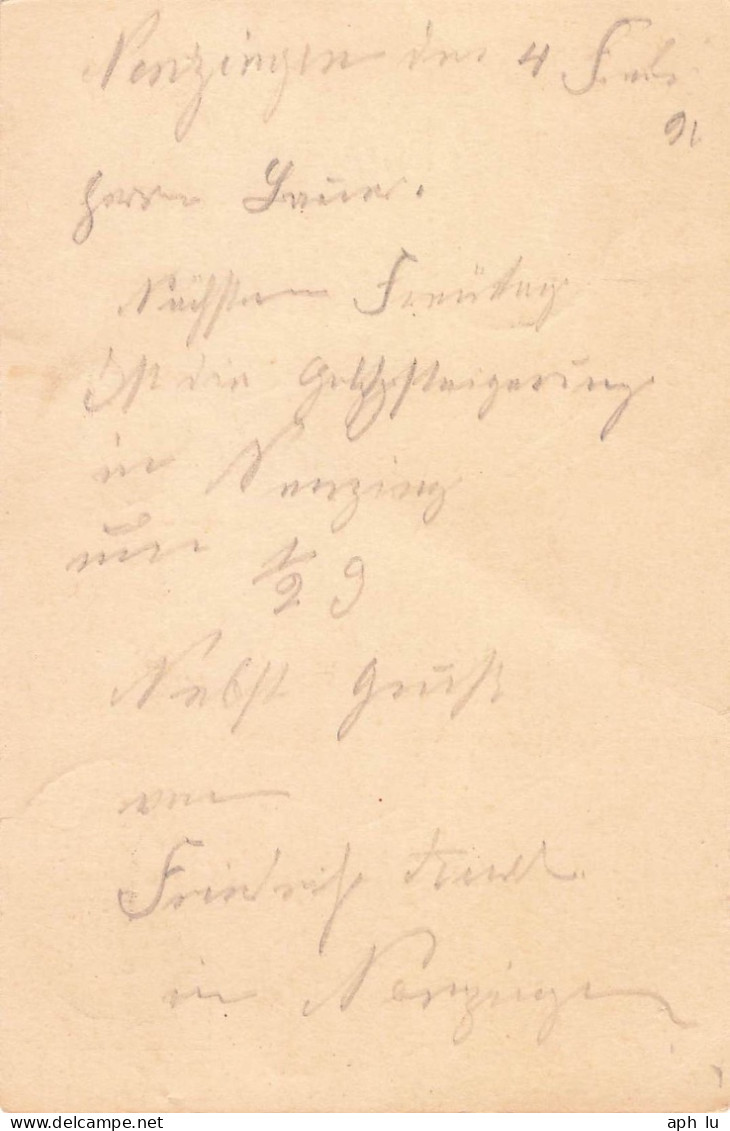 Nenzingen den 4 Feb
91
Herrn Bauer.
Nächsten Freüttag
Ist die Holzsteigerüng
in Nenzing
um
1/2 9
Nebst Gruß
von
Friedrich
in Nenzingen
aph lu